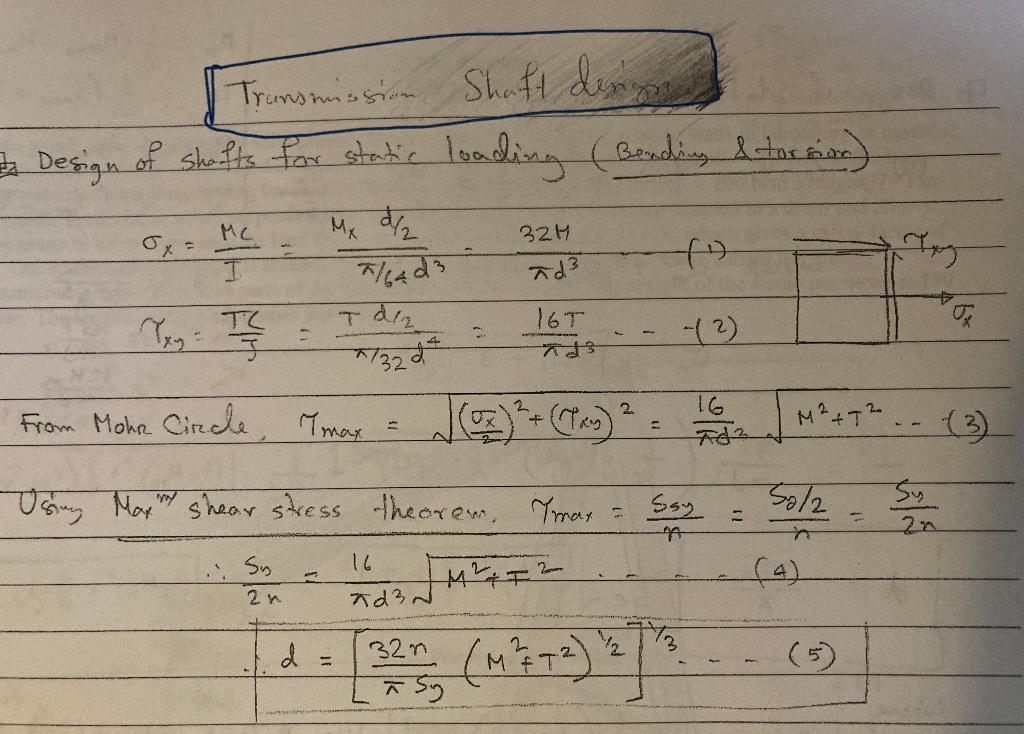 Transmission Shaft design
Design of shafts for static loading (Bending & torsion)
σx = MC/I = Mx d/2 / π/64 d³ = 32M/πd³ --- (1)
τxy
σx
τxy = TC/J = T d/2 / π/32 d⁴ = 16T/πd³ --- (2)
From Mohr Circle, τmax = √((σx/2)² + (τxy)²) = 16/πd³ √(M²+T²) -- (3)
Using Maxᵐ shear stress theorem, τmax = Ssy/n = Sy/2 / n = Sy/2n
∴ Sy/2n = 16/πd³ √(M²+T²) ----- (4)
∴ d = [32n/πSy (M²+T²)^1/2]^1/3 --- (5)